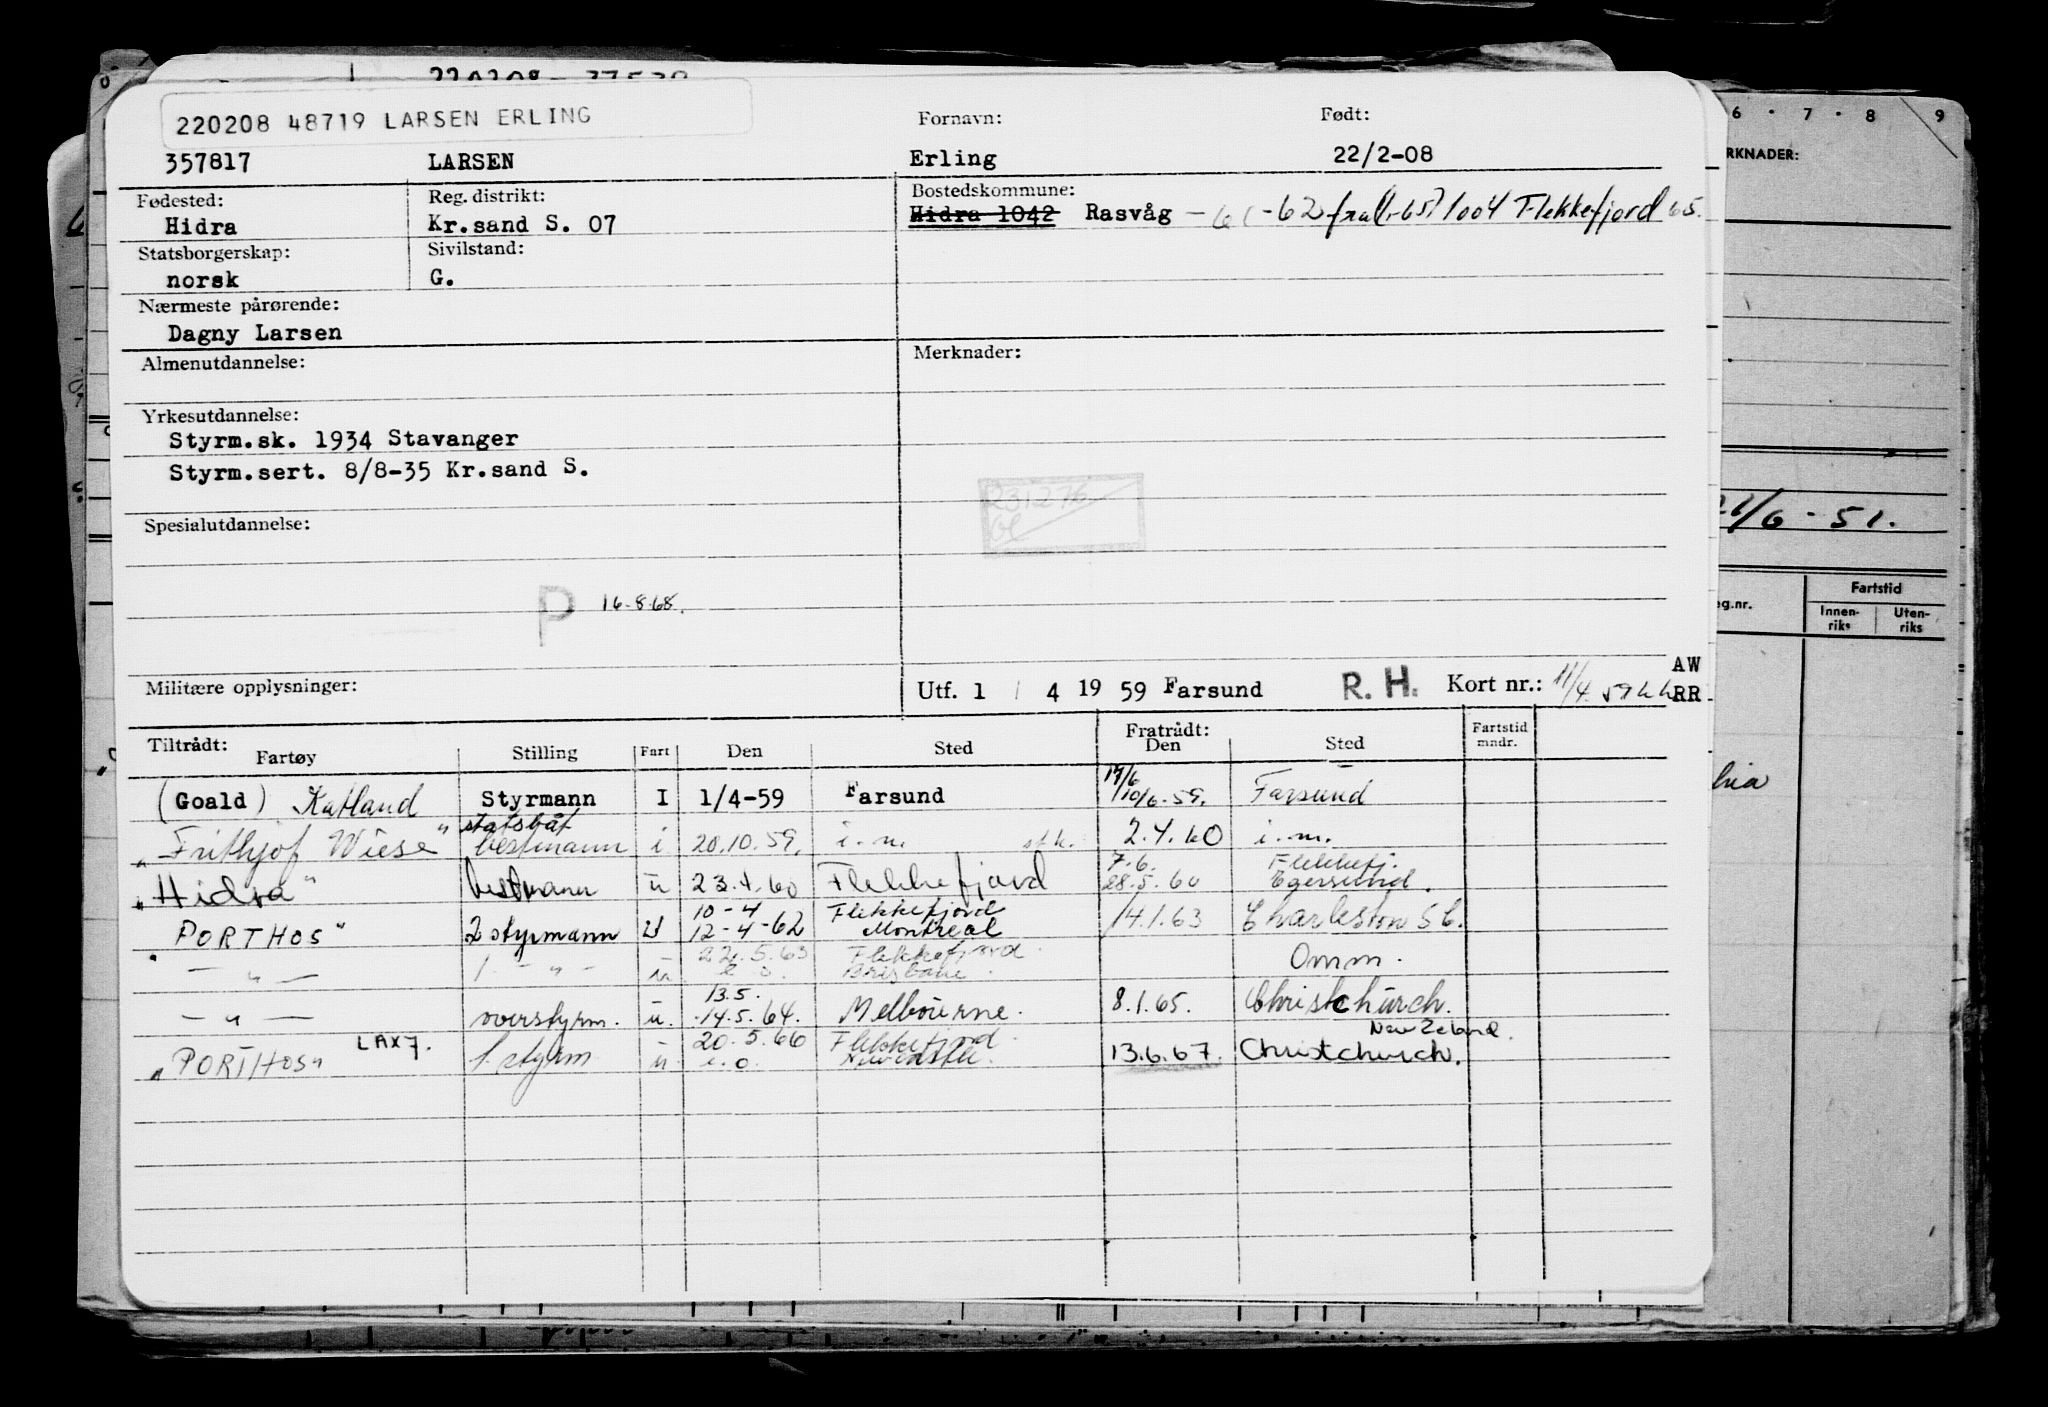 220208 48719 LARSEN ERLING
Fornavn: Født:
357817 LARSEN Erling 22/2-08
Fødested: Reg. distrikt: Bostedskommune:
Hidra Kr.sand S. 07 Hidra 1042 Rasvåg 1004 Flekkefjord 65.
Statsborgerskap: Sivilstand:
norsk G.
Nærmeste pårørende:
Dagny Larsen
Almenutdannelse: Merknader:
Yrkesutdannelse:
Styrm.sk. 1934 Stavanger
Styrm.sert. 8/8-35 Kr.sand S.
231276
Spesialutdannelse:
P 16.8.68.
Militære opplysninger: Utf. 1 / 4 19 59 Farsund R. H. Kort nr.: 11/4 59 AW
RR
Tiltrådt: Fratrådt:
Fartøy Stilling Fart Den Sted Den Sted Fartstid mndr.
(Goald) Katland Styrmann I 1/4-59 Farsund 10/6-59. Farsund
"Frithjof Wiese" statsbåt bestmann i 20.10.59. i.m. 2.4.60 i.m.
"Hidra" bestmann u 23.4.60 Flekkefjord 7.6. 28.5.60 Flekkefj. Egersund.
"PORTHOS" 2 styrmann U 10-4 12-4-62 Flekkefjord Montreal 14.1.63 Charleston S C.
— " — 1 - " - u 22.5.63 Flekkefjord Brisbane. Omm.
— " — overstyrm. u. 13.5. 14.5.64. Melbourne. 8.1.65. Christchurch.
"PORTHOS" LAX7. 1 styrm u 20.5.66 Flekkefjord Newcastle. 13.6.67. Christchurch. New Zeland.
6 · 7 · 8 · 9
RKNADER:
21/6 - 51.
Fartstid
eg.nr. Innen-riks Uten-riks